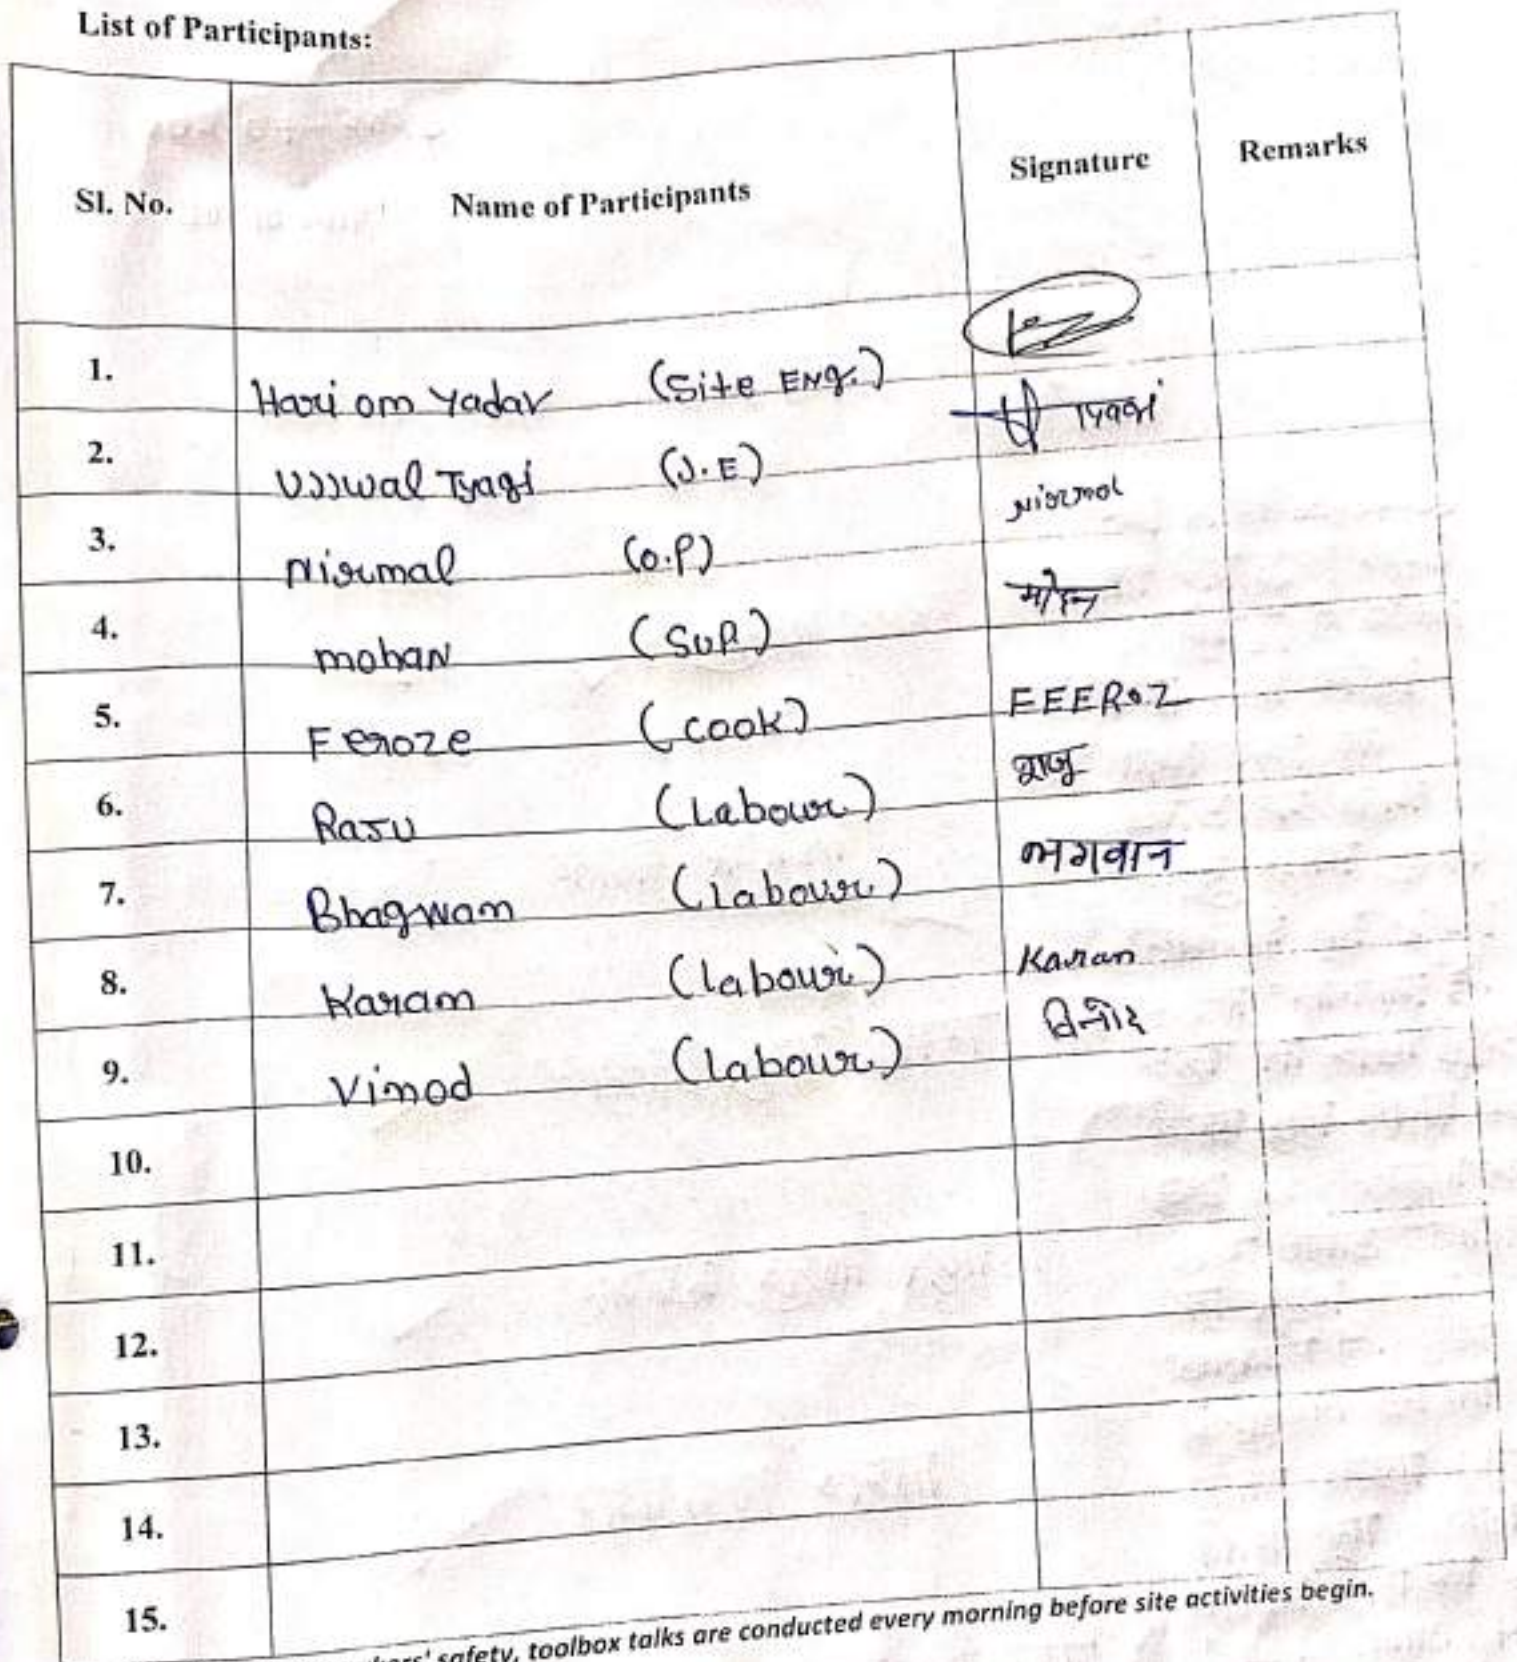 List of Participants:
Sl. No. Name of Participants Signature Remarks
1. Hari om Yadav (Site ENg.)
2. UJJwal Tyagi (J.E) त्यागी
3. Nirmal (O.P) Nirmal
4. mohan (SUP.) मोहन
5. Feroze (cook) FEEROZ
6. RaJU (Labour) राजु
7. Bhagwam (Labour) भगवान
8. Karam (labour) Karan
9. Vimod (labour) विनोद
10.
11.
12.
13.
14.
15.
safety, toolbox talks are conducted every morning before site activities begin.